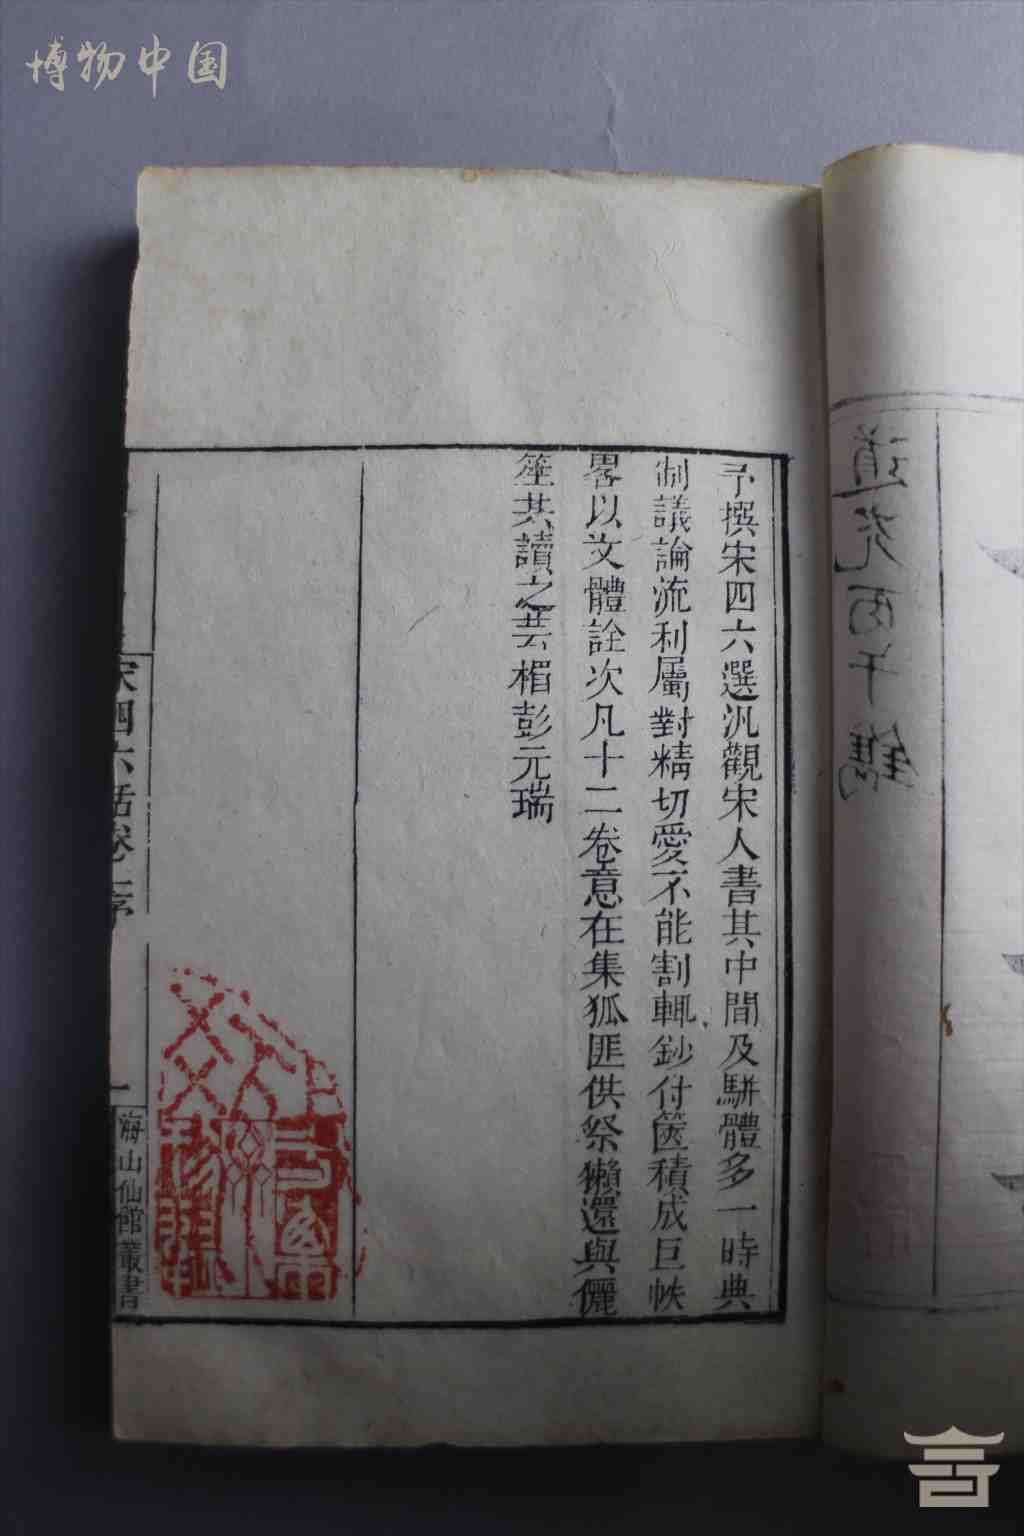 博物中国
予撰宋四六選汎觀宋人書其中間及駢體多一時典
制議論流利屬對精切愛不能割輒鈔付篋積成巨帙
畧以文體詮次凡十二卷意在集狐匪供祭獺還與儷
筵共讀之芸楣彭元瑞
宋四六話卷序
一
海山仙館叢書
道光丙午鐫